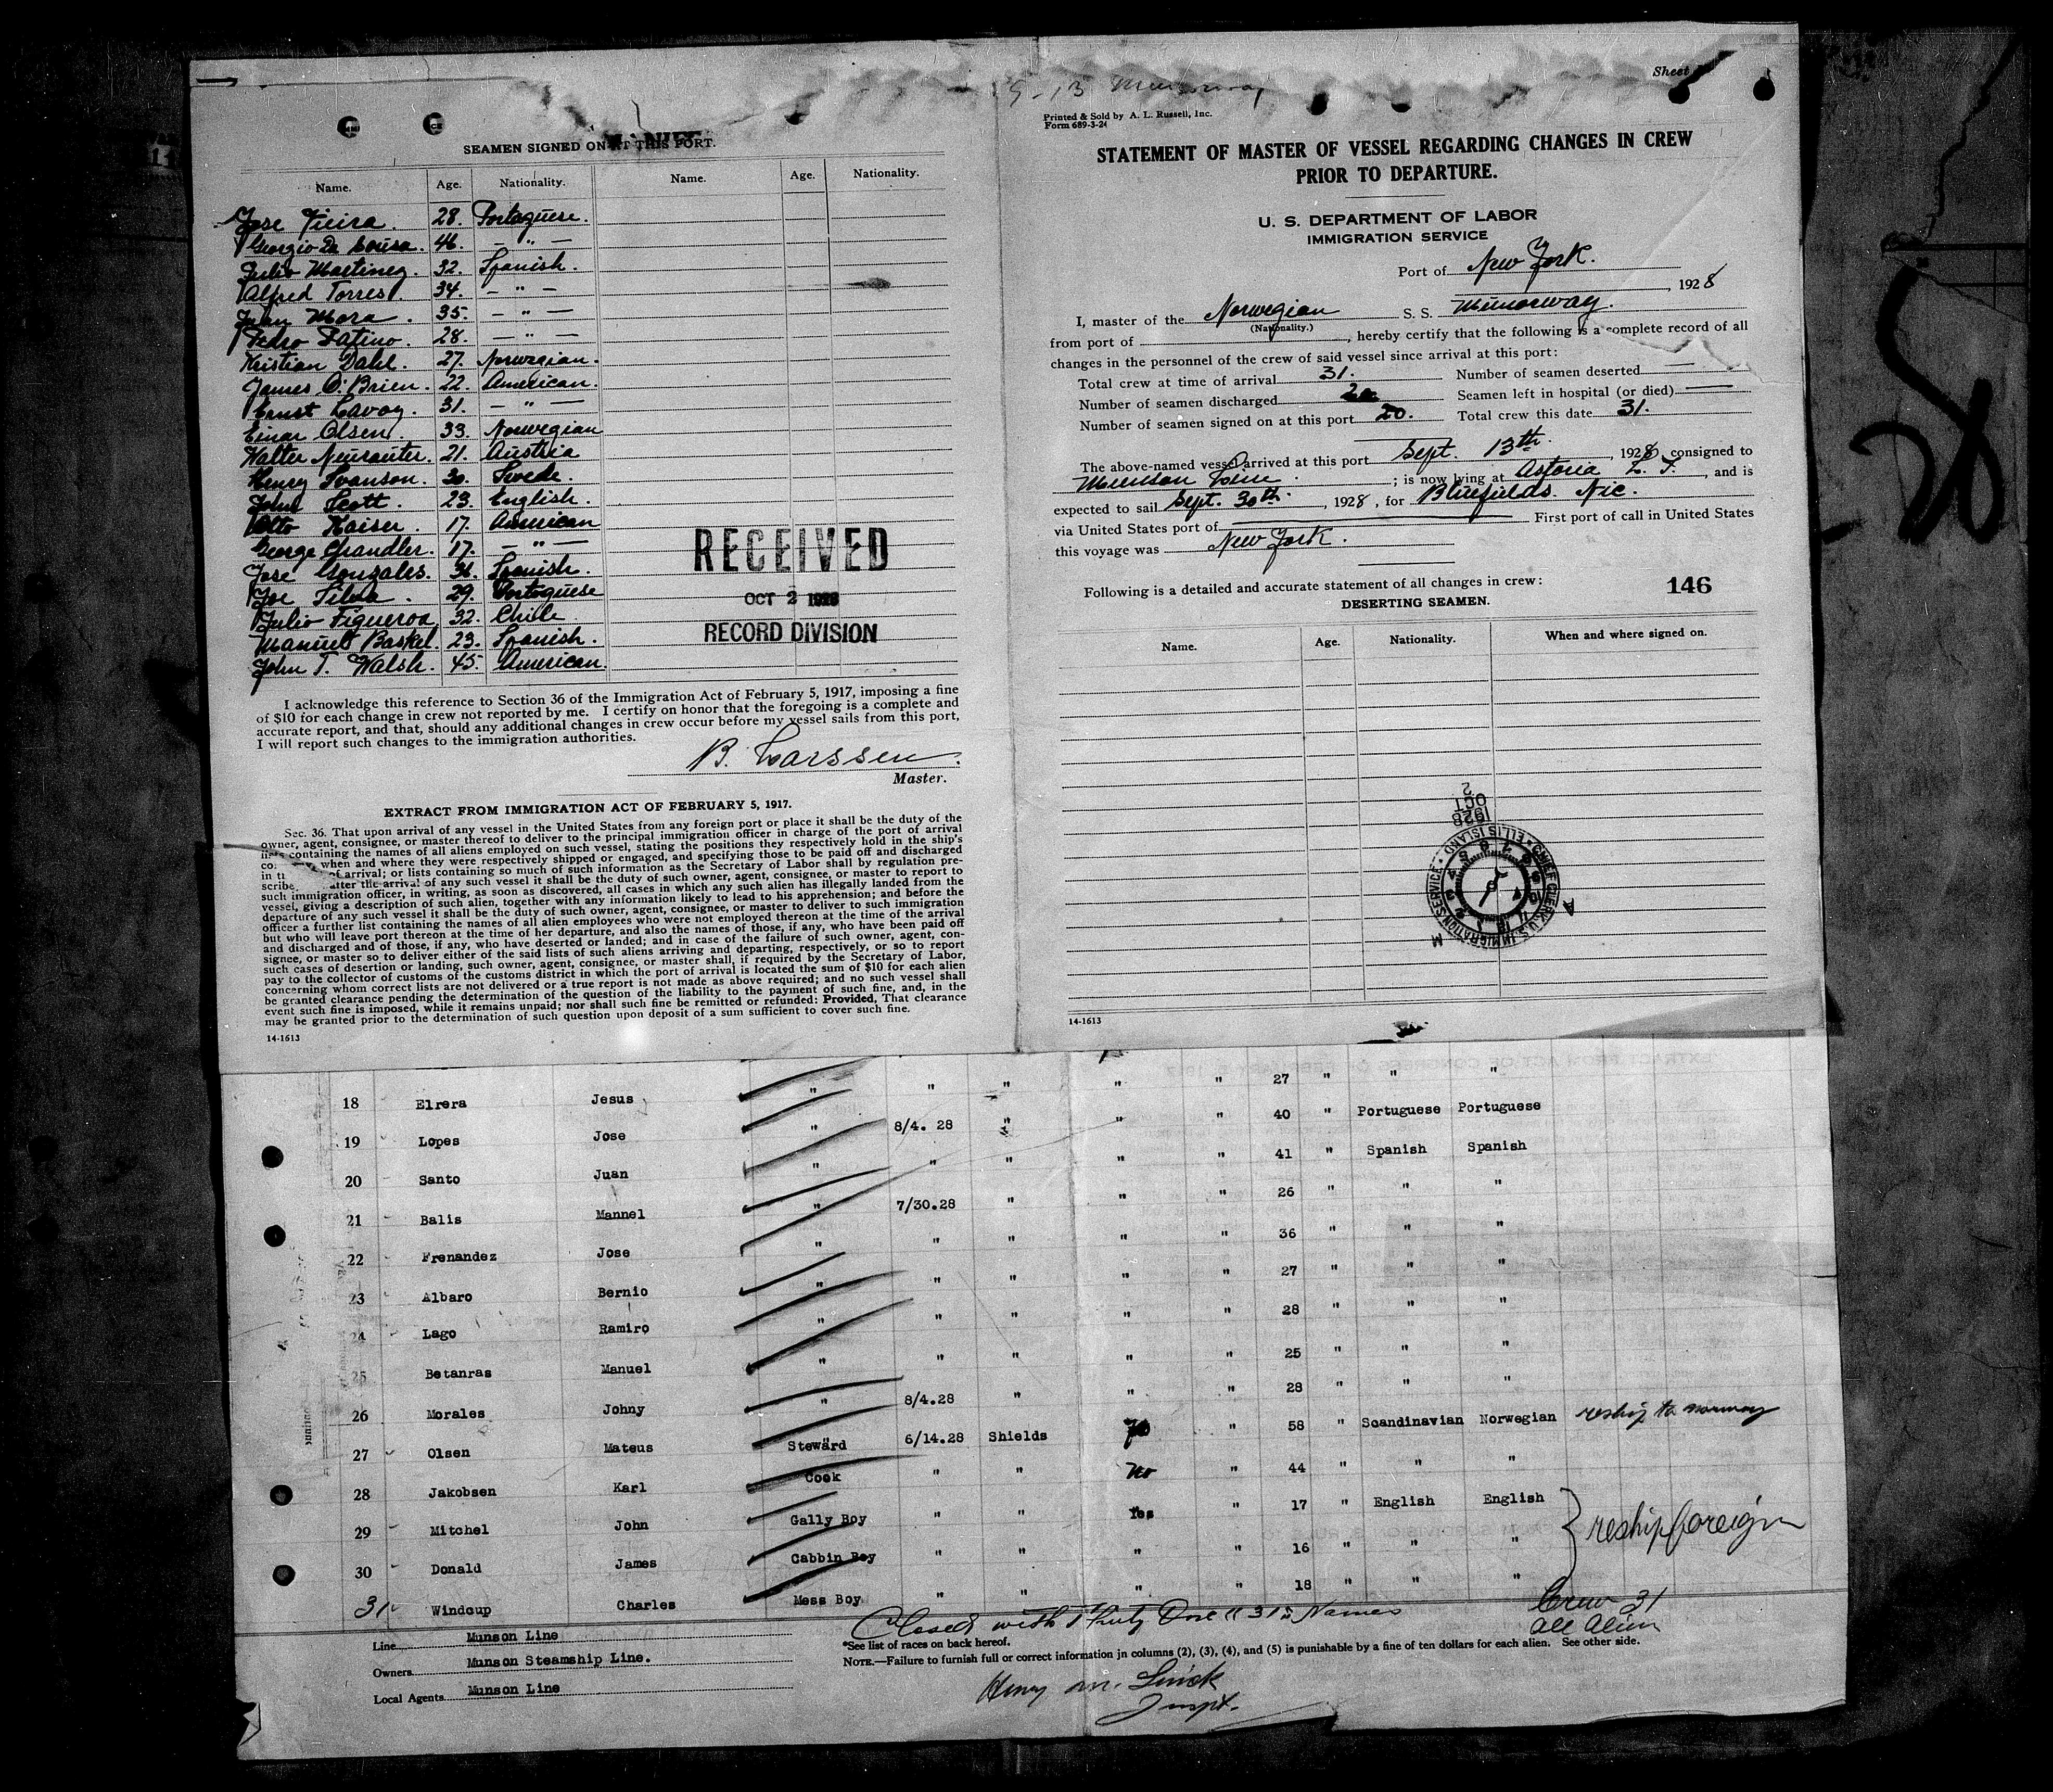 SEAMEN SIGNED ON AT THIS PORT.
Name. Age. Nationality. Name. Age. Nationality.
Jose Vieira. 28. Portuguese.
Georgio Da Cousa. 46. — " —
Julio Martinez. 32. Spanish.
Alfred Torres. 34. — " —
Juan Mora. 35. — " —
Pedro Patino. 28. — " —
Kristian Dahl. 27. Norwegian.
James O'Brien. 22. American.
Ernst Lavoy. 31. — " —
Einar Olsen. 33. Norwegian
Walter Neurauter. 21. Austria
Henry Svanson. 30. Swede.
John Scott. 23. English.
Otto Kaiser. 17. American
George Chandler. 17. — " —
Jose Gonzales. 36. Spanish.
Joe Silva. 29. Portoguese
Julio Figueroa. 32. Chile
Manuel Baskel. 23. Spanish.
John T. Walsh. 45. American.
RECEIVED
OCT 2 1928
RECORD DIVISION
I acknowledge this reference to Section 36 of the Immigration Act of February 5, 1917, imposing a fine
of $10 for each change in crew not reported by me. I certify on honor that the foregoing is a complete and
accurate report, and that, should any additional changes in crew occur before my vessel sails from this port,
I will report such changes to the immigration authorities.
B. Larssen.
Master.
EXTRACT FROM IMMIGRATION ACT OF FEBRUARY 5, 1917.
Sec. 36. That upon arrival of any vessel in the United States from any foreign port or place it shall be the duty of the
owner, agent, consignee, or master thereof to deliver to the principal immigration officer in charge of the port of arrival
containing the names of all aliens employed on such vessel, stating the positions they respectively hold in the ship's
when and where they were respectively shipped or engaged, and specifying those to be paid off and discharged
of arrival; or lists containing so much of such information as the Secretary of Labor shall by regulation pre-
scribe after the arrival of any such vessel it shall be the duty of such owner, agent, consignee, or master to report to
such immigration officer, in writing, as soon as discovered, all cases in which any such alien has illegally landed from the
vessel, giving a description of such alien, together with any information likely to lead to his apprehension; and before the
departure of any such vessel it shall be the duty of such owner, agent, consignee, or master to deliver to such immigration
officer a further list containing the names of all alien employees who were not employed thereon at the time of the arrival
but who will leave port thereon at the time of her departure, and also the names of those, if any, who have been paid off
and discharged and of those, if any, who have deserted or landed; and in case of the failure of such owner, agent, con-
signee, or master so to deliver either of the said lists of such aliens arriving and departing, respectively, or so to report
such cases of desertion or landing, such owner, agent, consignee, or master shall, if required by the Secretary of Labor,
pay to the collector of customs of the customs district in which the port of arrival is located the sum of $10 for each alien
concerning whom correct lists are not delivered or a true report is not made as above required; and no such vessel shall
be granted clearance pending the determination of the question of the liability to the payment of such fine, and, in the
event such fine is imposed, while it remains unpaid; nor shall such fine be remitted or refunded: Provided, That clearance
may be granted prior to the determination of such question upon deposit of a sum sufficient to cover such fine.
14-1613
9-13 Munorway
Sheet
Printed & Sold by A. L. Russell, Inc.
Form 689-3-24
STATEMENT OF MASTER OF VESSEL REGARDING CHANGES IN CREW
PRIOR TO DEPARTURE.
U. S. DEPARTMENT OF LABOR
IMMIGRATION SERVICE
Port of New York.
, 1928
I, master of the Norwegian S. S. Munorway.
(Nationality.)
from port of , hereby certify that the following is a complete record of all
changes in the personnel of the crew of said vessel since arrival at this port:
Total crew at time of arrival 31. Number of seamen deserted —
Number of seamen discharged 20 Seamen left in hospital (or died) —
Number of seamen signed on at this port 20. Total crew this date 31.
The above-named vessel arrived at this port Sept. 13th. , 1928, consigned to
Munson Line ; is now lying at Astoria L. I. , and is
expected to sail Sept. 30th. , 1928, for Bluefields. Nic.
via United States port of — First port of call in United States
this voyage was New York.
Following is a detailed and accurate statement of all changes in crew: 146
DESERTING SEAMEN.
Name. Age. Nationality. When and where signed on.
1928 OCT 2
CHIEF CLERK, U.S. IMMIGRATION SERVICE • ELLIS ISLAND •
A M
14-1613
18 Elrera Jesus " " " " " 27 " " "
19 Lopes Jose " 8/4. 28 " " " 40 " Portuguese Portuguese
20 Santo Juan " " " " " 41 " Spanish Spanish
21 Balis Mannel " 7/30.28 " " " 26 " " "
22 Frenandez Jose " " " " " 36 " " "
23 Albaro Bernio " " " " " 27 " " "
24 Lago Ramiro " " " " " 28 " " "
25 Betanras Manuel " " " " " 25 " " "
26 Morales Johny " 8/4.28 " " " 28 " " "
27 Olsen Mateus Steward 6/14.28 Shields " 58 " Scandinavian Norwegian reship to norway
28 Jakobsen Karl Cook " " no " 44 " " "
29 Mitchel John Gally Boy " " Yes " 17 " English English
30 Donald James Cabbin Boy " " " " 16 " " " reship foreign
31 Windcup Charles Mess Boy " " " " 18 " " "
Closed with Thirty One "31" Names
Crew 31
All Alien
Line Munson Line
Owners Munson Steamship Line.
Local Agents Munson Line
*See list of races on back hereof.
NOTE.—Failure to furnish full or correct information in columns (2), (3), (4), and (5) is punishable by a fine of ten dollars for each alien. See other side.
Henry M.
Inspt.